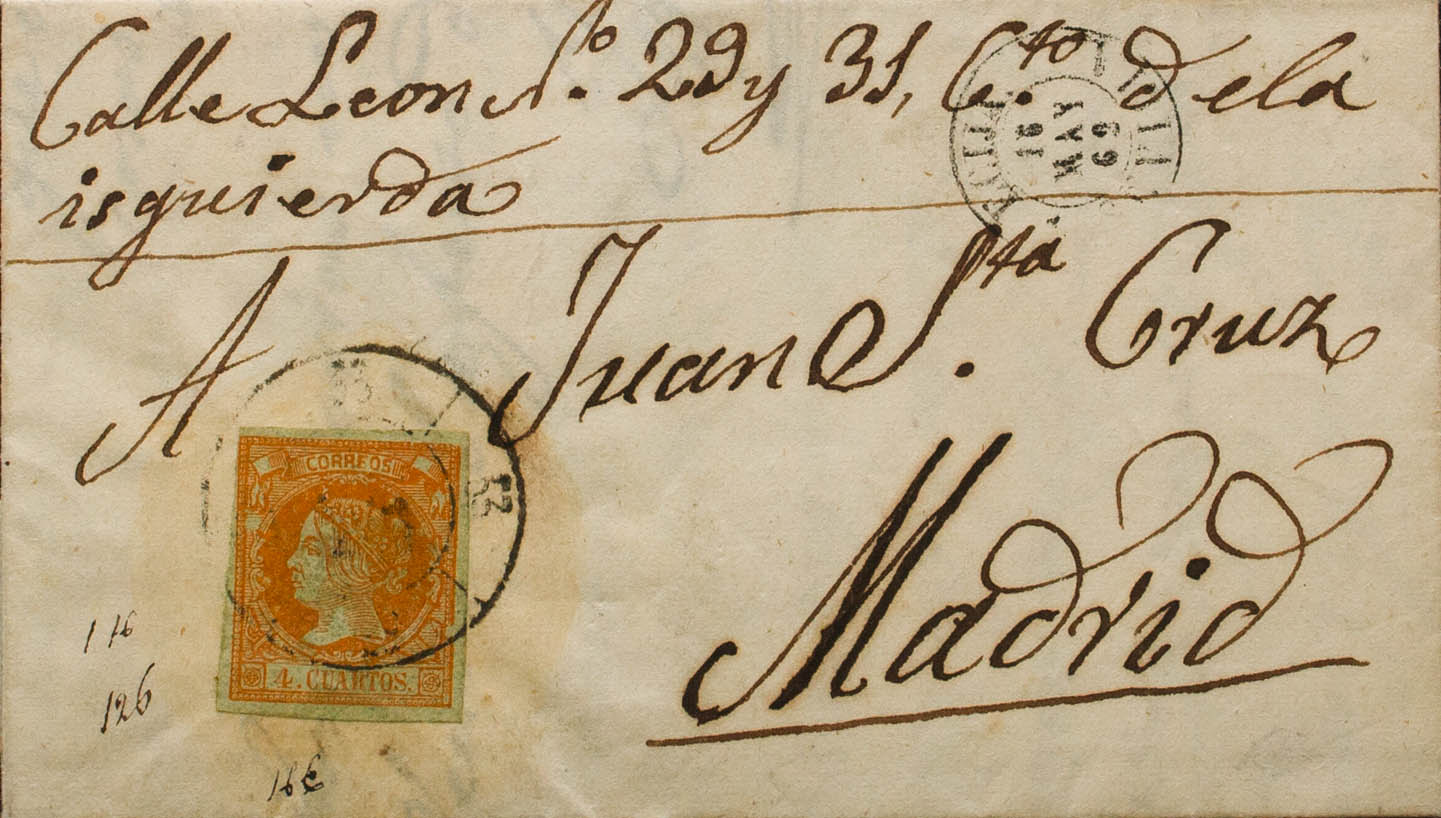 Calle Leon N.º 29 y 31, C.to de la
isquierda
16
MAY
69
A Juan S.ta Cruz
Madrid
CORREOS
4. CUARTOS.
126